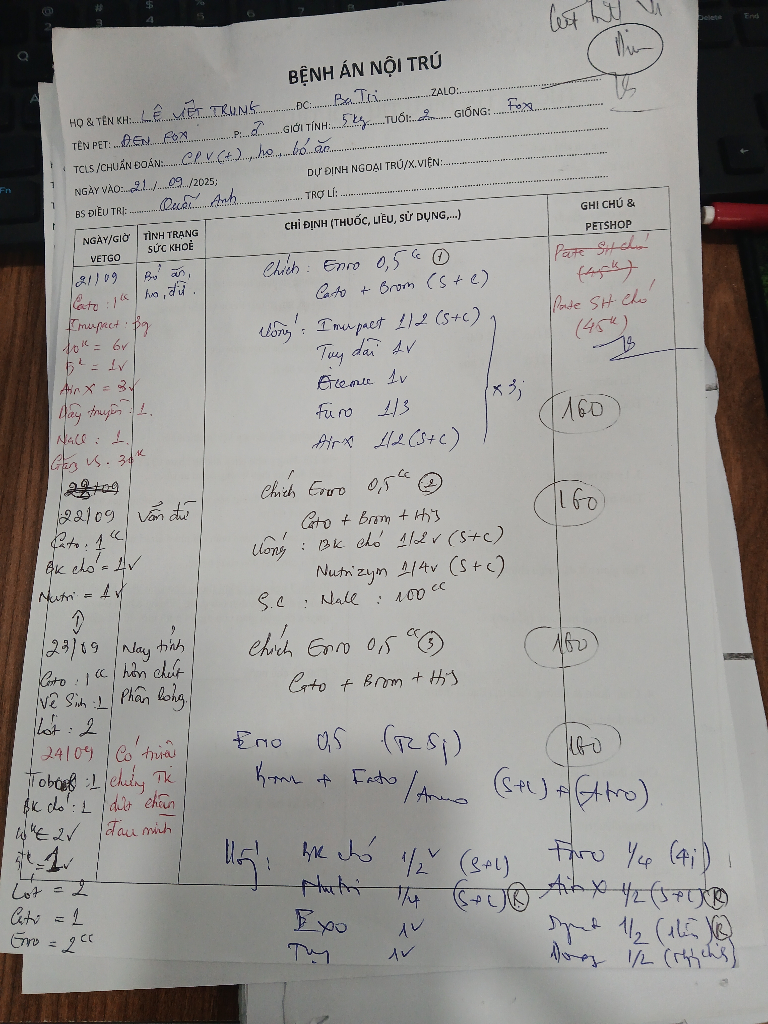 BỆNH ÁN NỘI TRÚ
HỌ & TÊN KH: LÊ VIẾT TRUNG ĐC: Ba Tri ZALO:
TÊN PET: ĐEN FOX P: ♂ GIỚI TÍNH: 5kg TUỔI: 2 GIỐNG: Fox
TCLS /CHUẨN ĐOÁN: CPV(+), ho, bỏ ăn
NGÀY VÀO: 21/09/2025; DỰ ĐỊNH NGOẠI TRÚ/X.VIỆN:
BS ĐIỀU TRỊ: Quốc Anh TRỢ LÍ:
NGÀY/GIỜ VETGO
TÌNH TRẠNG SỨC KHOẺ
CHỈ ĐỊNH (THUỐC, LIỀU, SỬ DỤNG,...)
GHI CHÚ & PETSHOP
21/09
Cato : 1cc
Imupact : 3g
10k = 6v
5k = 1v
Air X = 3v
Dây truyền : 1.
Nacl : 1.
Bỏ ăn,
ho, đừ.
Chích : Enro 0,5cc ①
Cato + Brom (S + C)
Uống : Imupact 1/2 (S+C)
Tuy dài 1v
1v
Furo 1/3
Air X 1/2 (S+C)
x 3j
Pate SH chó
(45k)
Pate SH chó
(45k)
160
22/09
22/09
Cato : 1cc
BK chó = 1v
Nutri = 1v
Vẫn đừ
Chích Enro 0,5cc ②
Cato + Brom + His
Uống : BK chó 1/2v (S+C)
Nutrizym 1/4v (S+C)
S.C : Nacl : 100cc
160
23/09
Cato : 1cc
Vệ Sinh : 1
Lót : 2
Nay tỉnh
hơn chút
Phân lỏng
Chích Enro 0,5cc ③
Cato + Brom + His
160
24/09
BK chó : 1
10k = 2v
5k = 1v
Lót = 2
Cato = 1
Enro = 2cc
Có triệu
chứng TK
đau mình
Enro 0,5
+ Cato (S+C) + (Atro)
160
Uống : BK chó 1/2v (S+C)
Nutri 1/4 (S+C) Ⓡ
Exo 1v
Tuy 1v
Furo 1/4 (4j)
Air X 1/2 (S+C) Ⓡ
1/2 Ⓡ
1/2